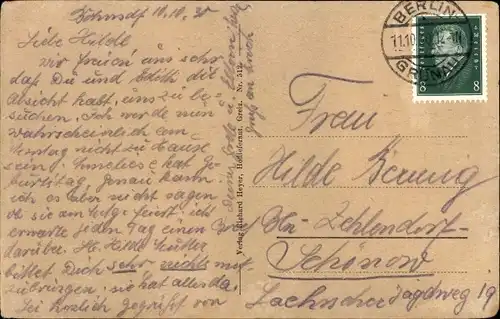 Bohnsdf 10.10.30
Liebe Hilde
wir freuen uns sehr
daß Du und Edith die
Absicht habt, uns zu be-
suchen. Ich werde nun
wahrscheinlich am
Montag nicht zu Hause
sein, Anneliese hat Ge-
burtstag. Genau kann
ich es aber nicht sagen
ob sie am Tage feiert, ich
erwarte jeden Tag einen
darüber. Mutter
bittet Dich sehr nichts mit
zubringen, sie hat alles da
Sei herzlich gegrüßt von
Deiner u.
Gruß an
Verlag Richard Heyer, Hoflieferant, Greiz. Nr. 512
BERLIN
11.10
GRÜNAU
8 8
Frau
Hilde
Bln Zehlendorf-
Schönow
Jagdweg 19